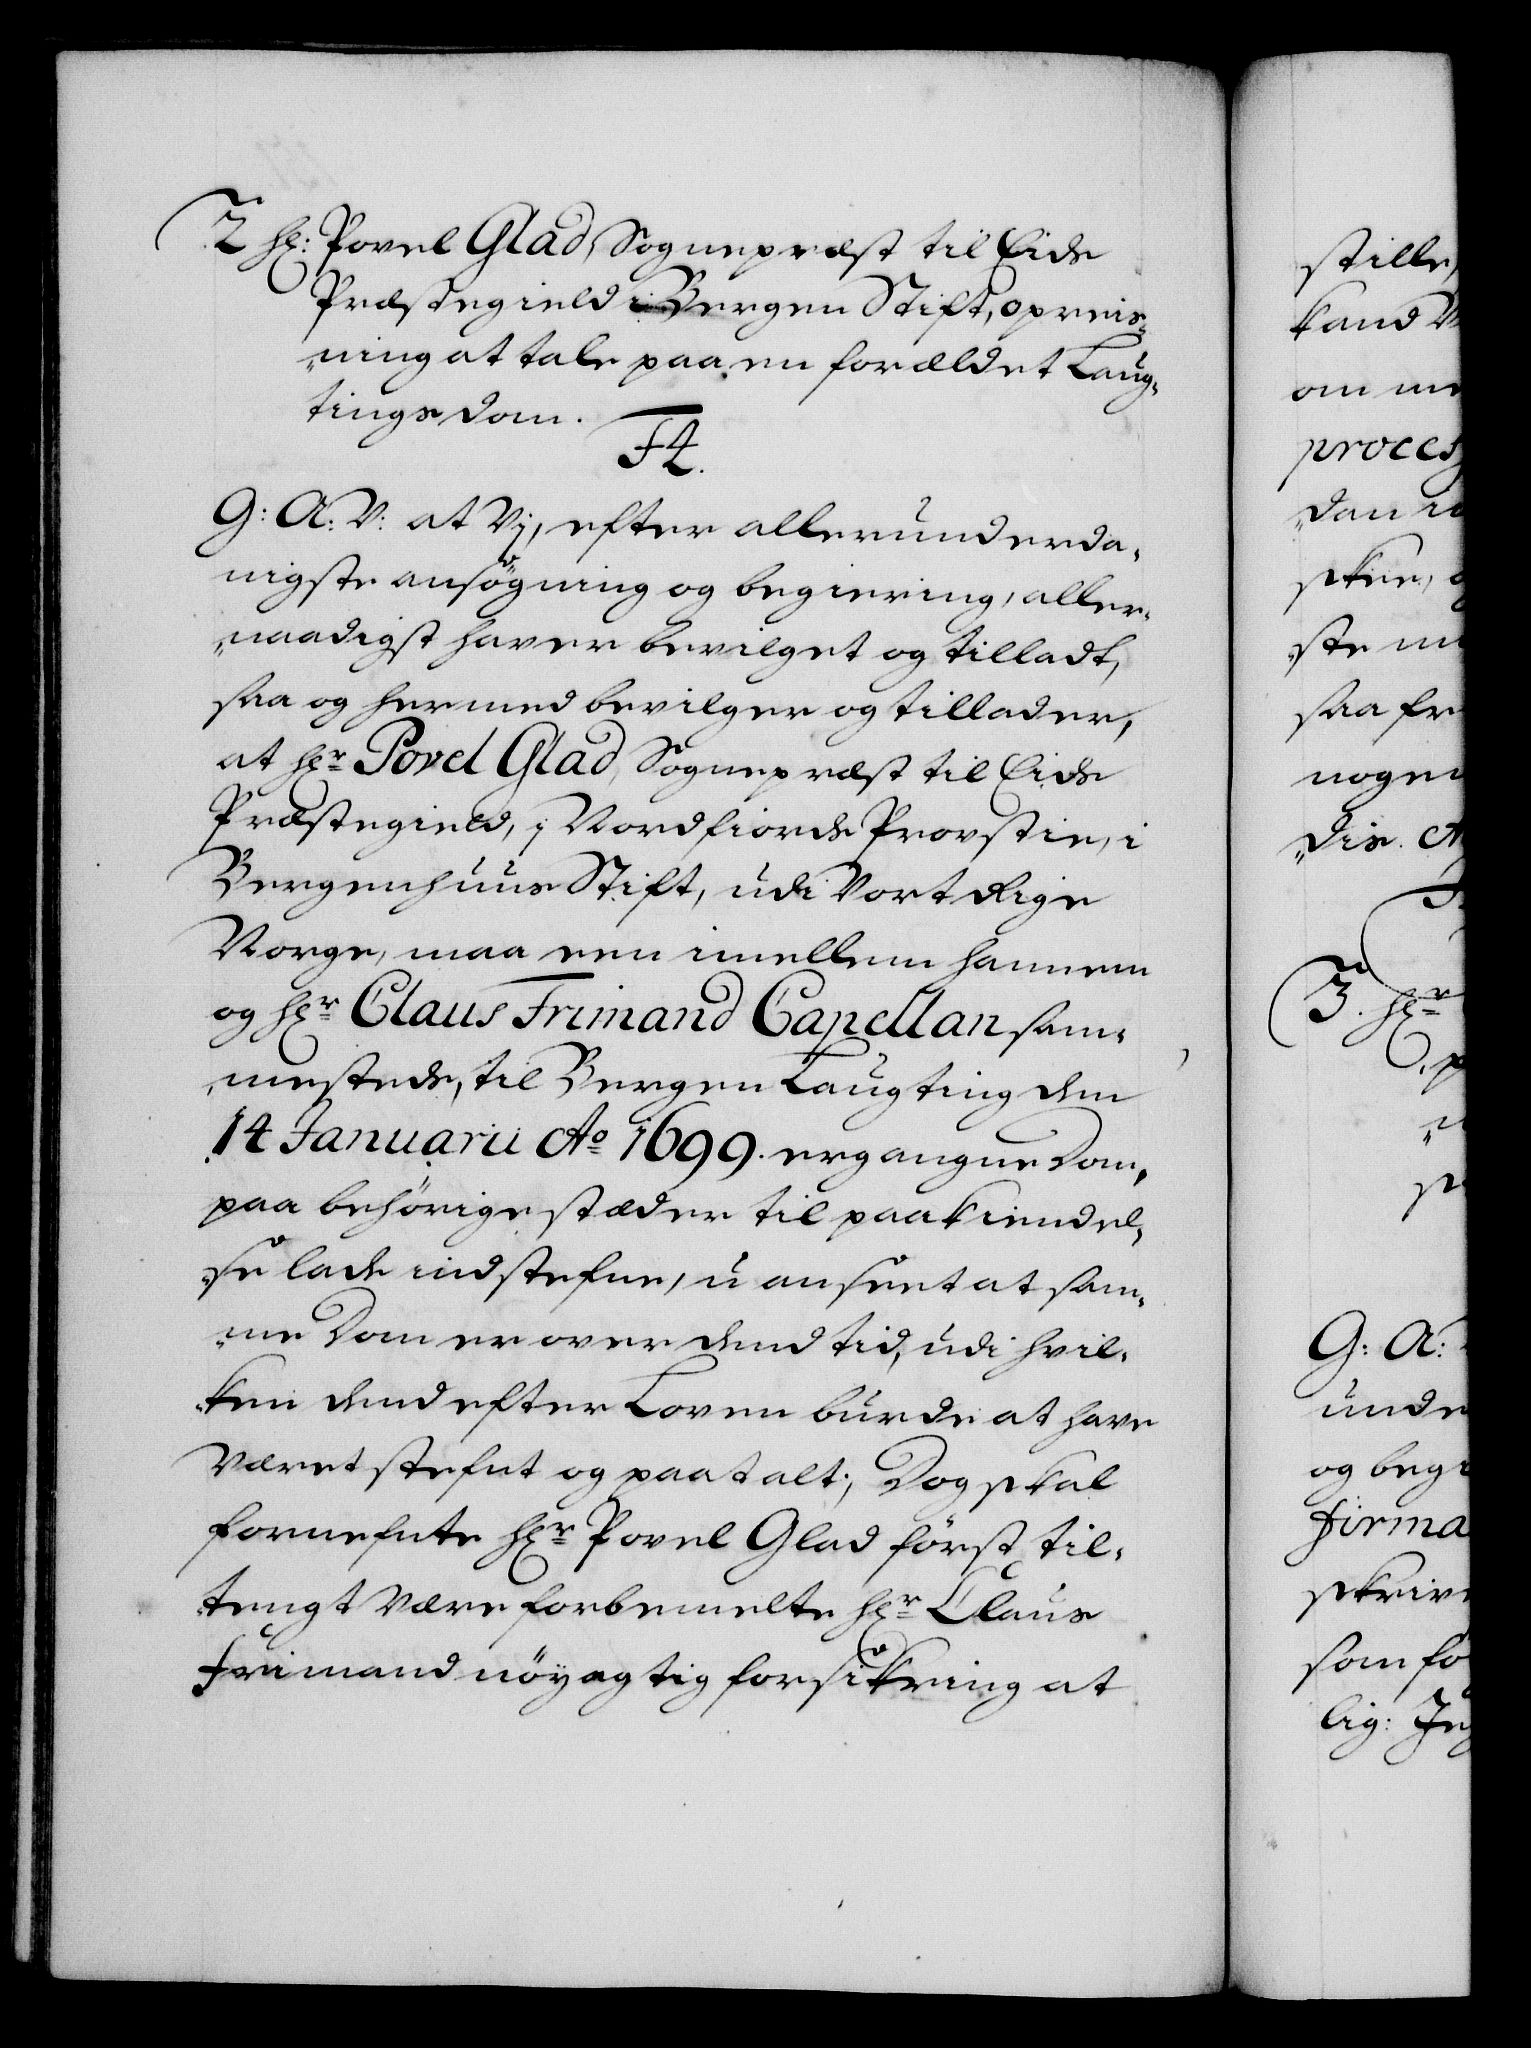 2 hr: Povel Glad, Sognepræst til Eids
Præstegield i Bergen Stift, opreis-
ning at tale paa en forældet Laug-
tings dom.
F4.
G: A: V: at Vj, efter allerunderda-
nigste ansøgning og begiering, aller-
naadigst haver bevilget og tilladt,
saa og hermed bevilger og tillader,
at hr Povel Glad, Sognepræst til Eids
Præstegield, i Nordfiords Provstie, i
Bergenhuus Stift, udi Vort Rige
Norge, maa een imellem hannem
og hr Claus Frimand Capellan sam-
mesteds, til Bergen Laugting den
14 Januarii Ao 1699. ergangne Dom,
paa behørige stæder til paakiendel-
se lade indstefne, uanseet at sam-
me Dom er over dend tid, udi hvil-
ken dend efter Loven burde at have
Været stefnt og paatalt; Dog skal
fornefnte hr Povel Glad først til-
tengt være forbemelte hr Claus
Frimand nøyagtig forsikring at
stille,
kand
om
proces
dan
skee,
ste
saa
nogen
dis.
3. hr
G: A:
unde
og begi
firma
skriv
som fo
lig: